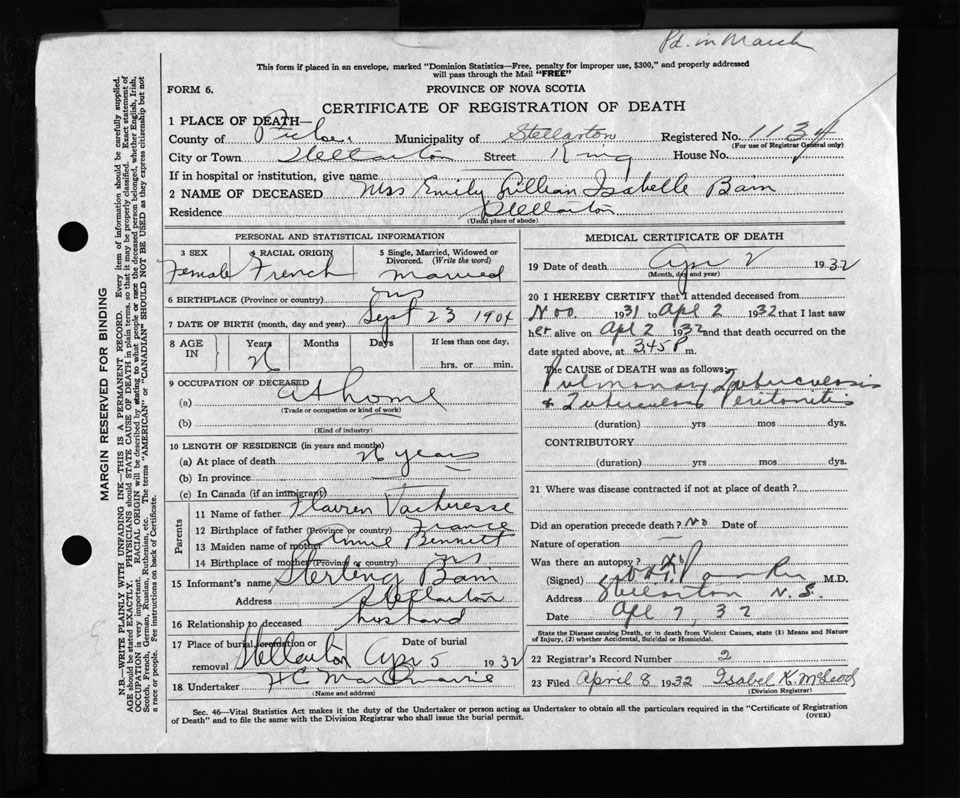 Pd. in March
This form if placed in an envelope, marked "Dominion Statistics—Free, penalty for improper use, $300," and properly addressed
will pass through the Mail "FREE"
FORM 6.
PROVINCE OF NOVA SCOTIA
CERTIFICATE OF REGISTRATION OF DEATH
1 PLACE OF DEATH—
County of Pictou Municipality of Stellarton Registered No. 1134
(For use of Registrar General only)
City or Town Stellarton Street King House No.
If in hospital or institution, give name
2 NAME OF DECEASED Mrs Emily Lillian Isabelle Bain
Residence Stellarton
(Usual place of abode)
PERSONAL AND STATISTICAL INFORMATION
3 SEX 4 RACIAL ORIGIN 5 Single, Married, Widowed or Divorced. (Write the word)
Female French Married
6 BIRTHPLACE (Province or country) NS
7 DATE OF BIRTH (month, day and year) Sept 23 1904
8 AGE IN Years Months Days If less than one day,
hrs. or min.
9 OCCUPATION OF DECEASED
(a) At home
(Trade or occupation or kind of work)
(b)
(Kind of industry)
10 LENGTH OF RESIDENCE (in years and months)
(a) At place of death years
(b) In province
(c) In Canada (if an immigrant)
Parents
11 Name of father
12 Birthplace of father (Province or country) France
13 Maiden name of mother Annie Bennett
14 Birthplace of mother (Province or country) NS
15 Informant's name Sterling Bain
Address Stellarton
16 Relationship to deceased husband
17 Place of burial, cremation or removal Stellarton Date of burial Apr 5 1932
18 Undertaker
(Name and address)
MEDICAL CERTIFICATE OF DEATH
19 Date of death Apr 2 1932
(Month, day and year)
20 I HEREBY CERTIFY that I attended deceased from
Nov. 1931 to Apl 2 1932 that I last saw
her alive on Apl 2 1932 and that death occurred on
date stated above, at 3.45 P m.
The CAUSE OF DEATH was as follows:
Pulmonary Tuberculosis
& Tuberculous Peritonitis
(duration) yrs mos dys.
CONTRIBUTORY
(duration) yrs mos dys.
21 Where was disease contracted if not at place of death?
Did an operation precede death? No Date of
Nature of operation
Was there an autopsy?
(Signed) M.D.
Address Stellarton N.S.
Date Apl 7, 32
State the Disease causing Death, or in death from Violent Causes, state (1) Means and Nature
of Injury, (2) whether Accidental, Suicidal or Homicidal.
22 Registrar's Record Number 2
23 Filed April 8 1932 Isabel K. McLeod
(Division Registrar)
Sec. 46—Vital Statistics Act makes it the duty of the Undertaker or person acting as Undertaker to obtain all the particulars required in the "Certificate of Registration
of Death" and to file the same with the Division Registrar who shall issue the burial permit.
(OVER)
MARGIN RESERVED FOR BINDING
N.B.—WRITE PLAINLY WITH UNFADING INK—THIS IS A PERMANENT RECORD. Every item of information should be carefully supplied.
AGE should be stated EXACTLY. PHYSICIANS should STATE CAUSE OF DEATH in plain terms, so that it may be properly classified. Exact statement of
OCCUPATION is very important. RACIAL ORIGIN will be described by stating to what people or race the deceased person belonged, whether English, Irish,
Scotch, French, German, Russian, Ruthenian, etc. The terms "AMERICAN" or "CANADIAN" SHOULD NOT BE USED as they express citizenship but not
a race or people. See instructions on back of Certificate.